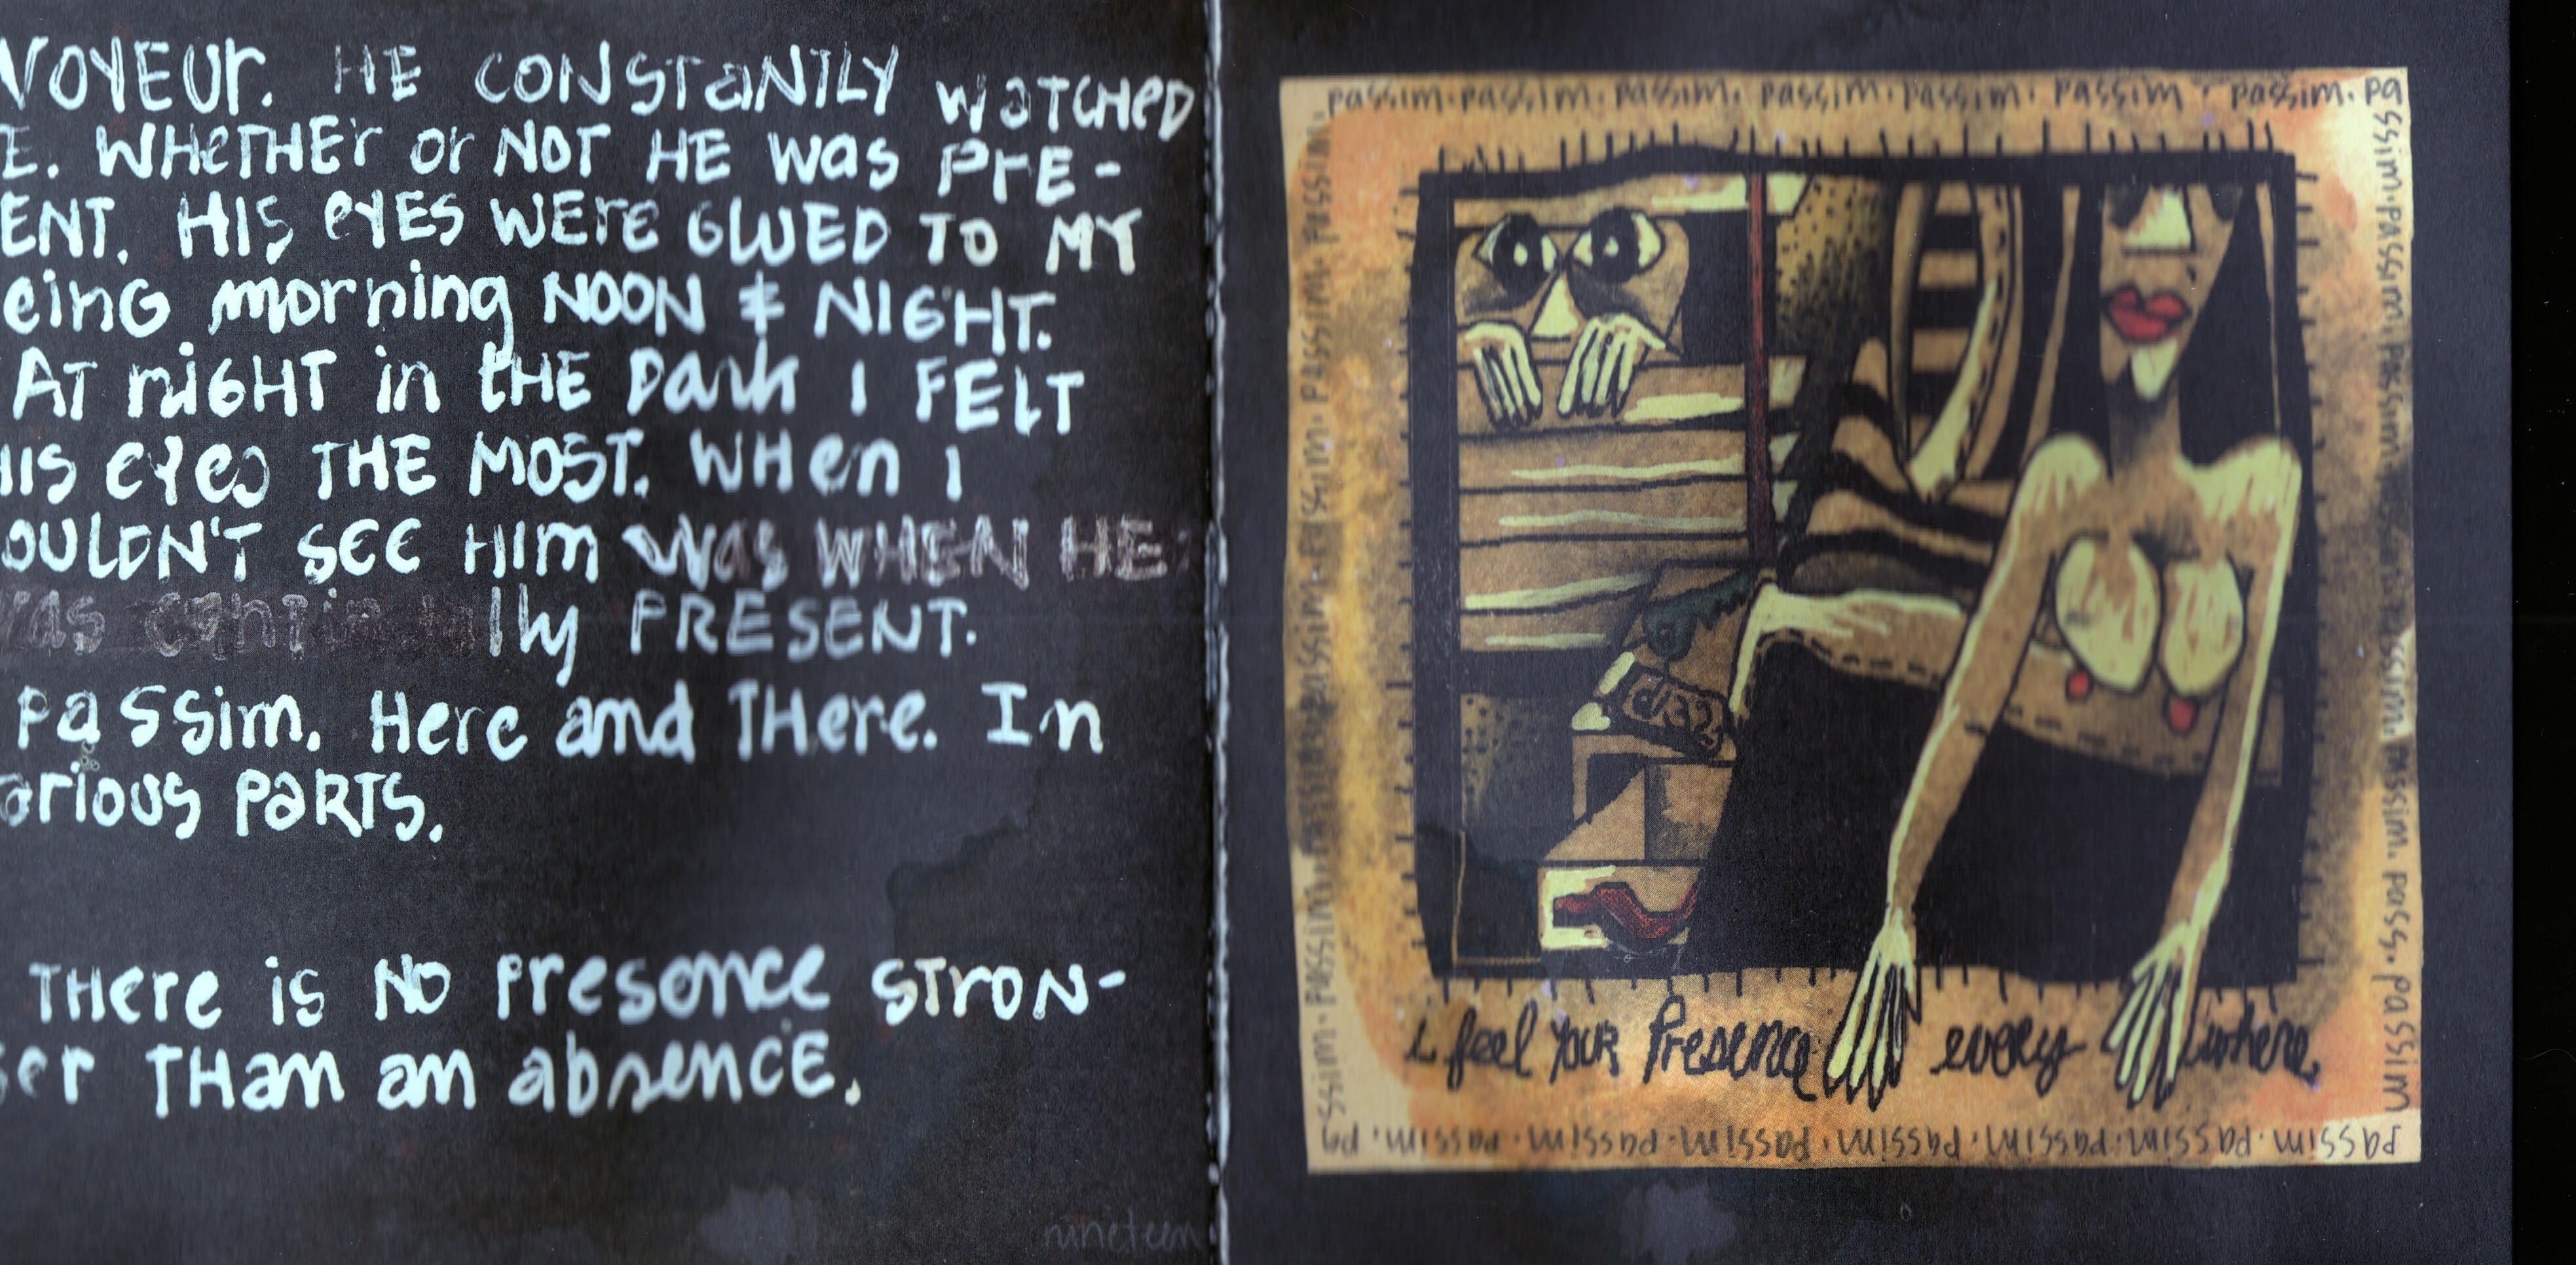 VOYEUr. HE CONSTaNTLY WaTCHeD
E. WHeTHEr or NOT HE was PrE-
ENT. HIS eYES WErE GLUED TO MY
eing morning NOON & NIGHT.
AT niGHT in tHE Dark I FELT
HIS eYes THE MOST. WHen I
OULDN'T SEE Him Was WHEN HE
was continually PRESENT.
PaSSim. Here and THere. In
arious PaRTS.
THere is NO Presence STrON-
ger THan an absence.
nineteen
passim. passim. passim. passim. passim. passim. passim. pa
ssim. passim. passim. passim. passim. passim. passim. pass. passim
passim. passim. passim. passim. passim. passim. passim. pa
ssim. passim. passim. passim. passim. passim. passim.
i feel your Presence every where.